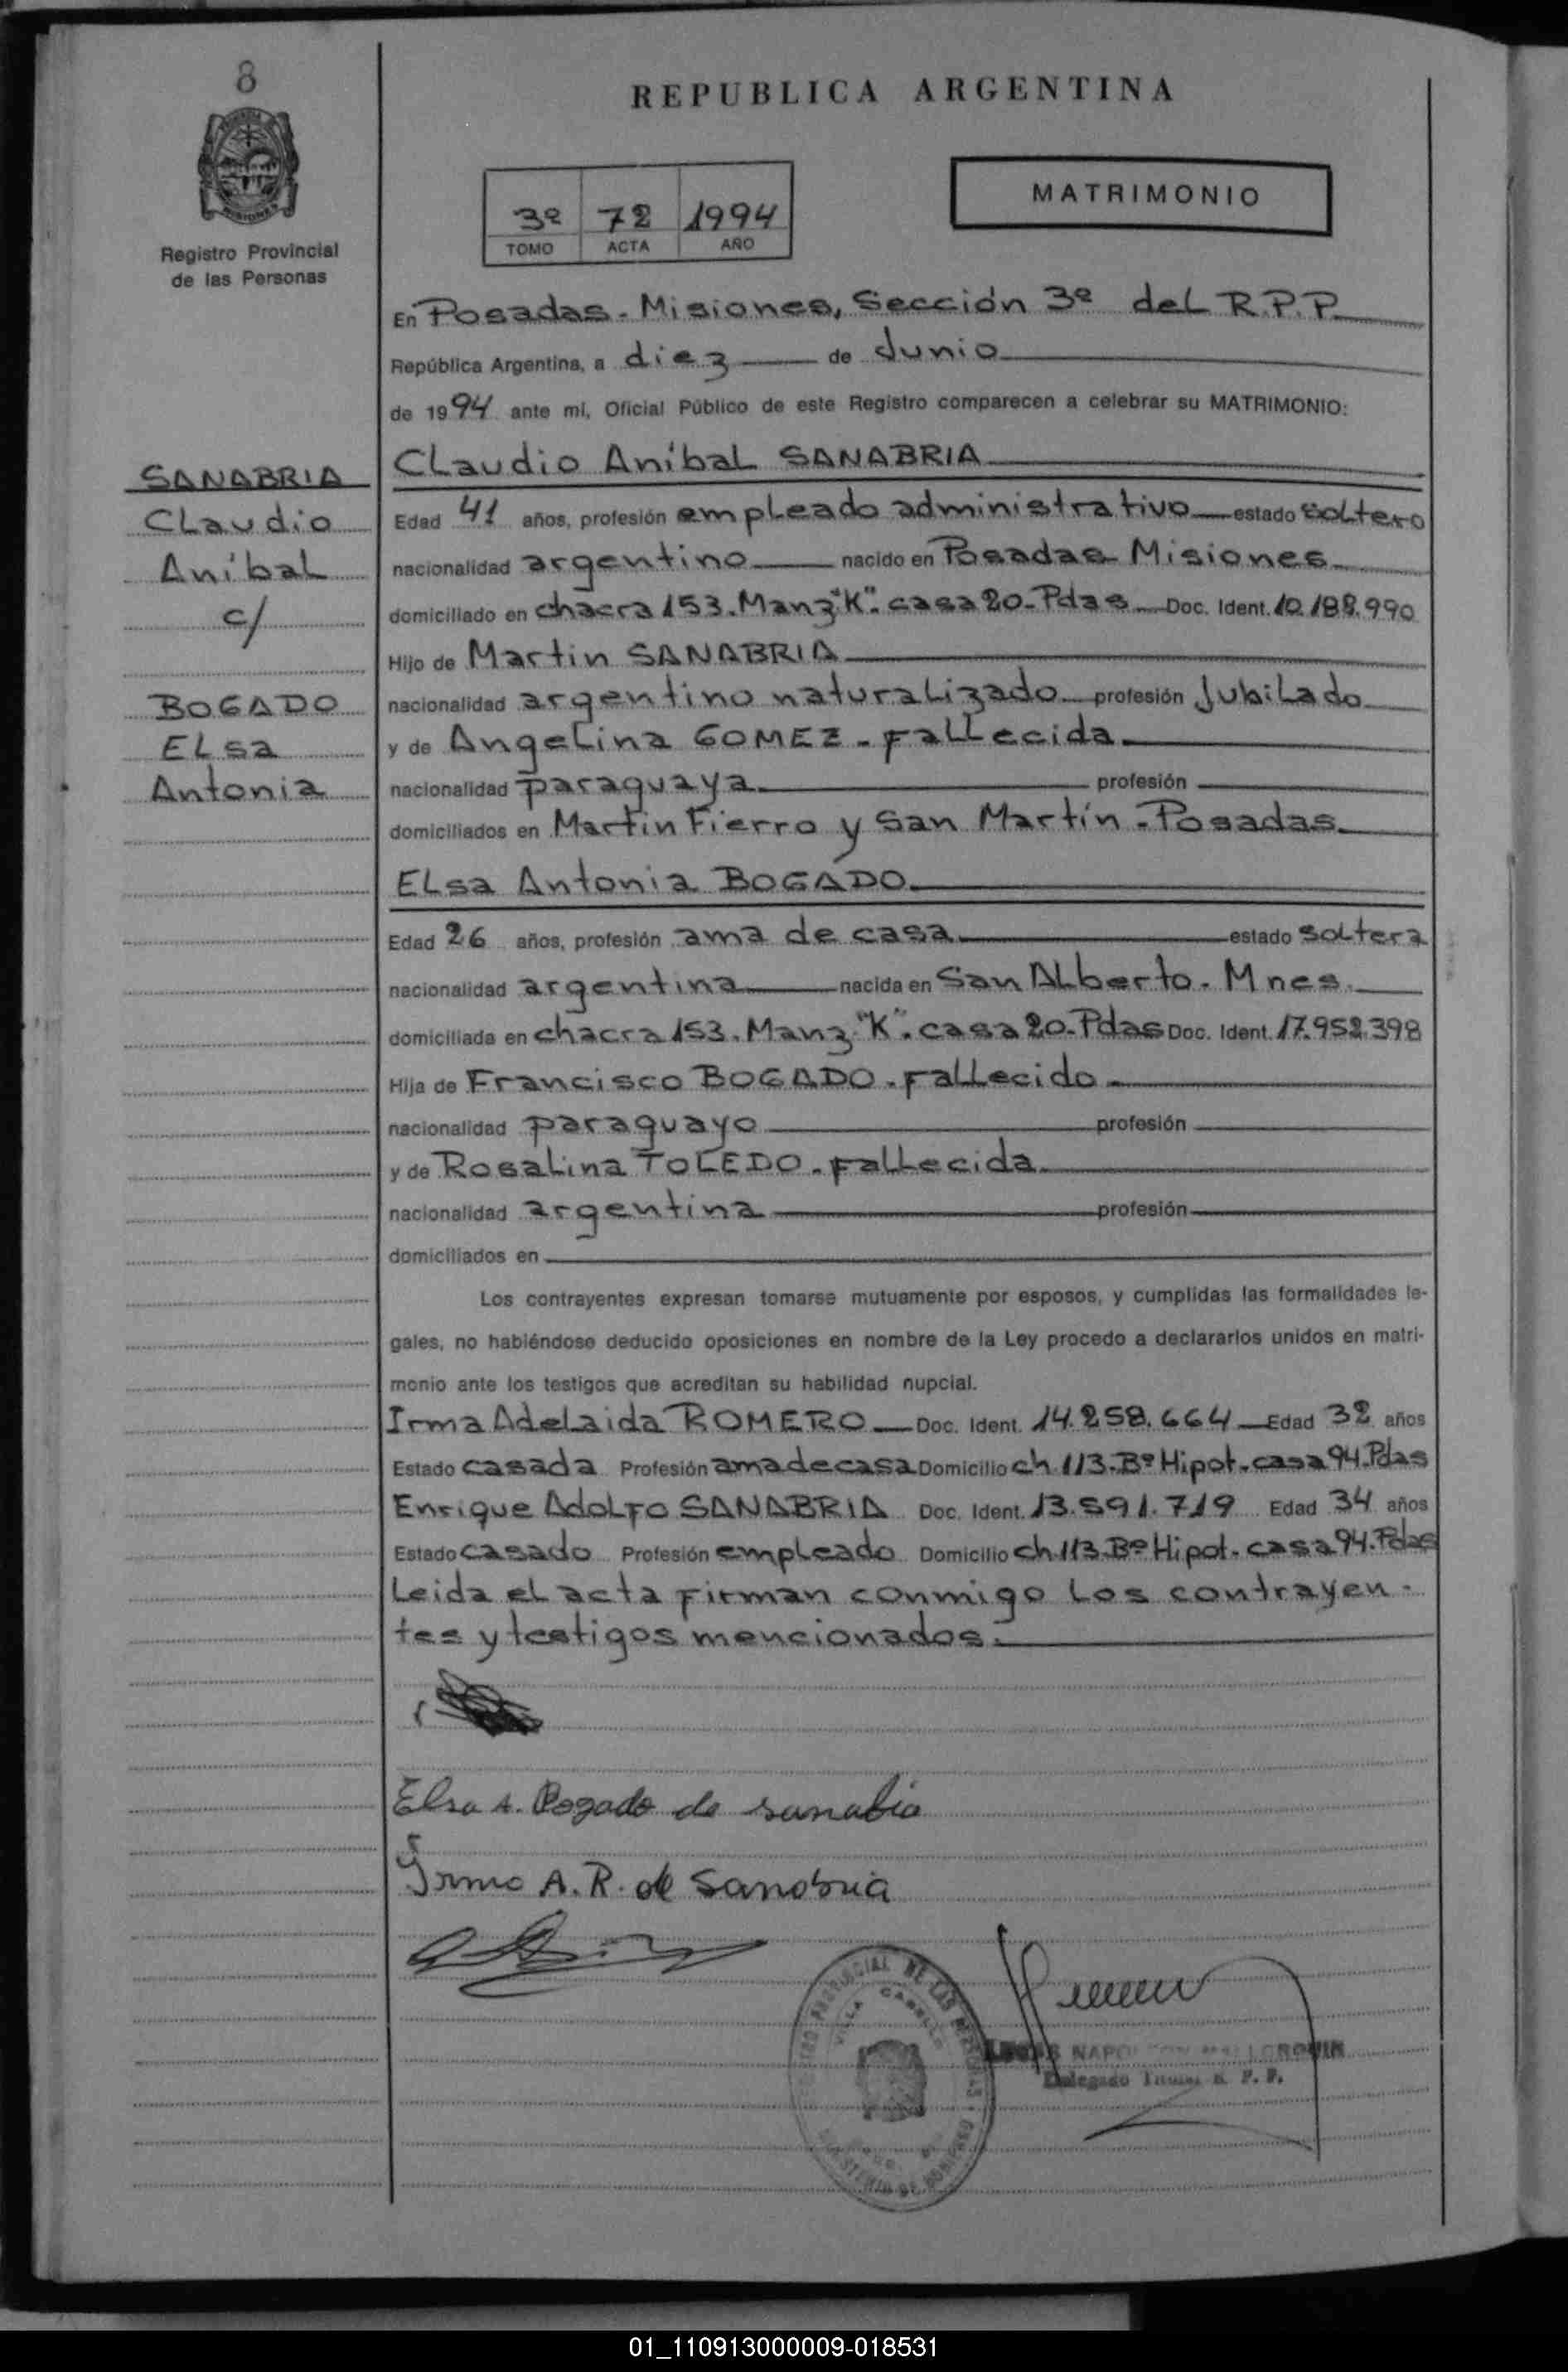 8
REPUBLICA ARGENTINA
Registro Provincial
de las Personas
3º 72 1994
TOMO ACTA AÑO
MATRIMONIO
En Posadas - Misiones, Sección 3º del R.P.P.
República Argentina, a diez de Junio
de 1994 ante mi, Oficial Público de este Registro comparecen a celebrar su MATRIMONIO:
SANABRIA
Claudio
Aníbal
c/
BOGADO
Elsa
Antonia
Claudio Aníbal SANABRIA
Edad 41 años, profesión empleado administrativo estado soltero
nacionalidad argentino nacido en Posadas Misiones
domiciliado en chacra 153. Manz "K". casa 20 - Pdas Doc. Ident. 10.188.990
Hijo de Martin SANABRIA
nacionalidad argentino naturalizado profesión Jubilado
y de Angelina GOMEZ - Fallecida
nacionalidad paraguaya profesión
domiciliados en Martin Fierro y San Martín - Posadas
Elsa Antonia BOGADO
Edad 26 años, profesión ama de casa estado soltera
nacionalidad argentina nacida en San Alberto - Mnes.
domiciliada en chacra 153. Manz "K". casa 20 - Pdas Doc. Ident. 17.952.398
Hija de Francisco BOGADO - Fallecido
nacionalidad paraguayo profesión
y de Rosalina TOLEDO - Fallecida
nacionalidad argentina profesión
domiciliados en
Los contrayentes expresan tomarse mutuamente por esposos, y cumplidas las formalidades le-
gales, no habiéndose deducido oposiciones en nombre de la Ley procedo a declararlos unidos en matri-
monio ante los testigos que acreditan su habilidad nupcial.
Irma Adelaida ROMERO Doc. Ident. 14.258.664 Edad 32 años
Estado casada Profesión ama de casa Domicilio ch 113 - Bº Hipot. casa 94. Pdas
Enrique Adolfo SANABRIA Doc. Ident. 13.591.719 Edad 34 años
Estado casado Profesión empleado Domicilio ch 113 - Bº Hipot. casa 94. Pdas
Leida el acta firman conmigo los contrayen-
tes y testigos mencionados.
Elsa A. Bogado de sanabia
Irma A. R. de Sanabria
Delegado Titular R. P. P.
01_110913000009-018531